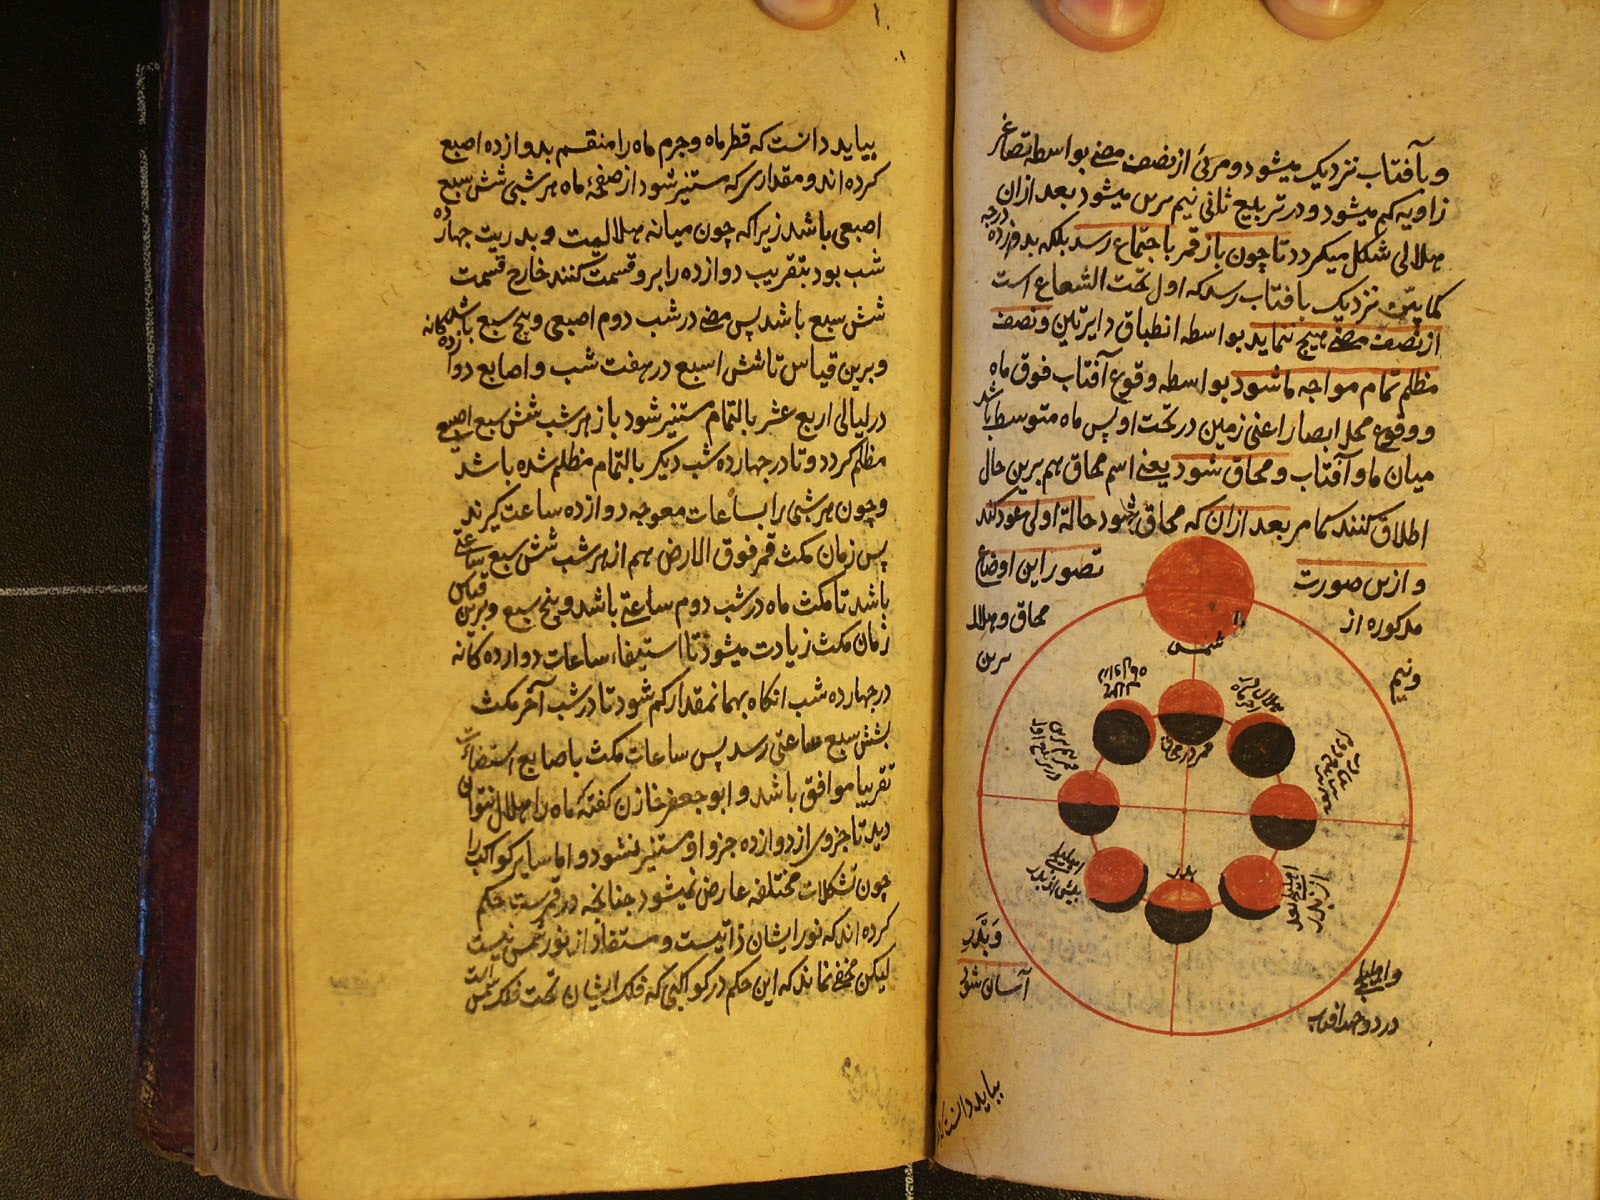 و بآفتاب نزدیک میشود و مرئی از نصف مضئ بواسطه تصاغر
زاویه کم میشود و در تربیع ثانی نیم سرین میشود بعد ازان
هلالی شکل میکردد تا چون باز قمر باجتماع رسد بلکه بدوازده درجه
کمابیش نزدیک بافتاب رسد که اول تحت الشعاع است
از نصف مضئ هیچ ننماید بواسطه انطباق دایرتین و نصف
مظلم تمام مواجه ما شود بواسطه وقوع آفتاب فوق ماه
و وقوع محل ابصار اعنی زمین در تحت او پس ماه متوسط باشد
میان ما و آفتاب و محاق شود یعنی اسم محاق هم برین حال
اطلاق کنند کما مر بعد ازان که محاق شود حالة اولی عود کند
و ازین صورت تصور این اوضاع
مذکوره از محاق و هلال
ونیم سرین
شمس
قمر در محاق
بدر
اهلیلجی بعد از بدر
و اهلیلجی وبدر
در دو جهة افتاب آسان شود
بباید دانست که
بباید دانست که قطر ماه و جرم ماه را منقسم بدوازده اصبع
کرده اند و مقداری که مستنیر شود از صفحهٔ ماه هر شبی شش سبع
اصبعی باشد زیرا که چون میانه هلالیت و بدریت چهارده
شب بود بتقریب دوازده را برو قسمت کنند خارج قسمت
شش سبع باشد پس مضئ در شب دوم اصبعی و پنج سبع باشد
و برین قیاس تا شش اسبع در هفت شب و اصابع دوازده کانه
در لیالی اربع عشر بالتمام مستنیر شود باز هر شب شش سبع اصبع
مظلم کردد و تا در چهارده شب دیکر بالتمام مظلم شده باشد
و چون هر شبی را بساعات معوجه دوازده ساعت کیرند
پس زمان مکث قمر فوق الارض هم از هر شب شش سبع ساعتی
باشد تا مکث ماه در شب دوم ساعتی باشد و پنج سبع و برین قیاس
زمان مکث زیادت میشود تا استیفاء ساعات دوازده کانه
در چهارده شب انکاه بهمان مقدار کم شود تا در شب آخر مکث
بشش سبع ساعتی رسد پس ساعات مکث با صابع استضائت
تقریبا موافق باشد و ابو جعفر خازن کفته که ماه را هلال نتوان
دید تا جزوی از دوازده جزو او مستنیر نشود و اما سایر کواکب را
چون تشکلات مختلفه عارض نمیشود چنانچه در قمرست حکم
کرده اند که نور ایشان ذاتیست و مستفاد از نور شمس نیست
لیکن مخفی نماند که این حکم در کواکبی که فلک ایشان تحت فلک شمس است